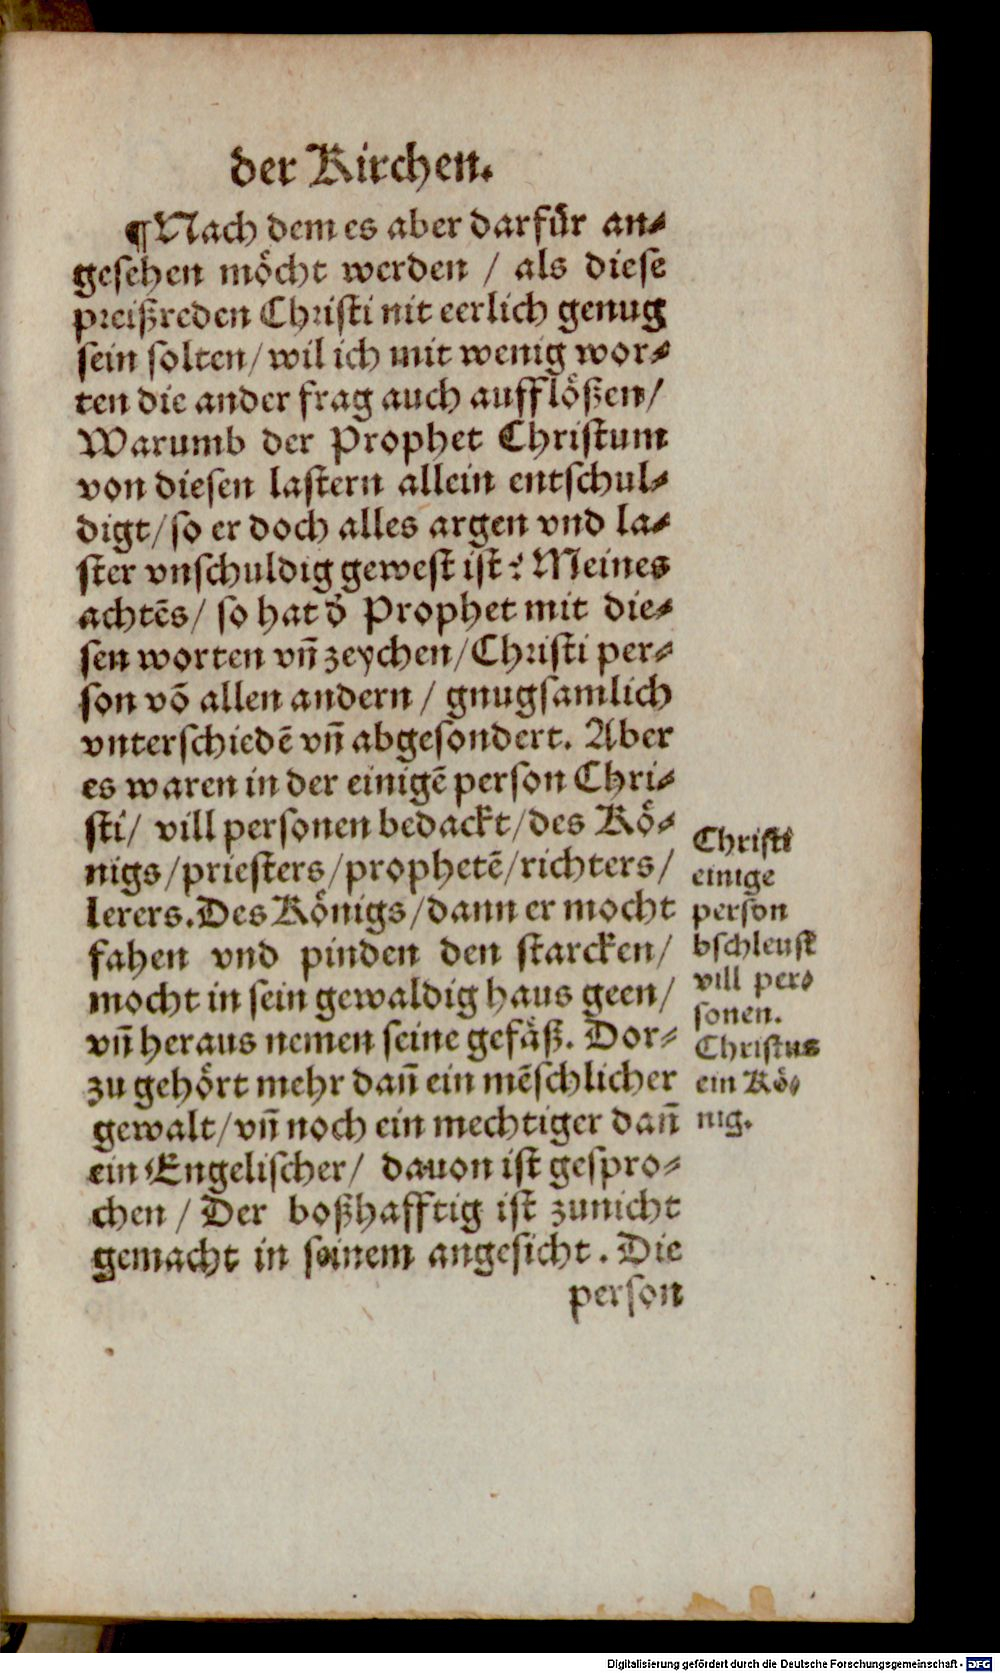 der Kirchen.
¶Nach dem es aber darfür an-
gesehen möcht werden / als diese
preißreden Christi nit eerlich genug
sein solten/ wil ich mit wenig wor-
ten die ander frag auch aufflößen/
Warumb der Prophet Christum
von diesen lastern allein entschul-
digt/ so er doch alles argen vnd la-
ster vnschuldig gewest ist? Meines
achtēs/ so hat d̄ Prophet mit die-
sen worten vn̄ zeychen/ Christi per-
son vō allen andern / gnugsamlich
vnterschiedē vn̄ abgesondert. Aber
es waren in der einigē person Chri-
sti/ vill personen bedackt/ des Kö-
nigs/ priesters/ prophetē/ richters/
lerers. Des Königs/ dann er mocht
fahen vnd pinden den starcken/
mocht in sein gewaldig haus geen/
vn̄ heraus nemen seine gefäß. Dor-
zu gehört mehr dan̄ ein mēschlicher
gewalt/ vn̄ noch ein mechtiger dan̄
ein Engelischer/ dauon ist gespro-
chen / Der boßhafftig ist zunicht
gemacht in seinem angesicht. Die
person
Christi
einige
person
bschleust
vill per-
sonen.
Christus
ein Kö-
nig.
Digitalisierung gefördert durch die Deutsche Forschungsgemeinschaft - DFG